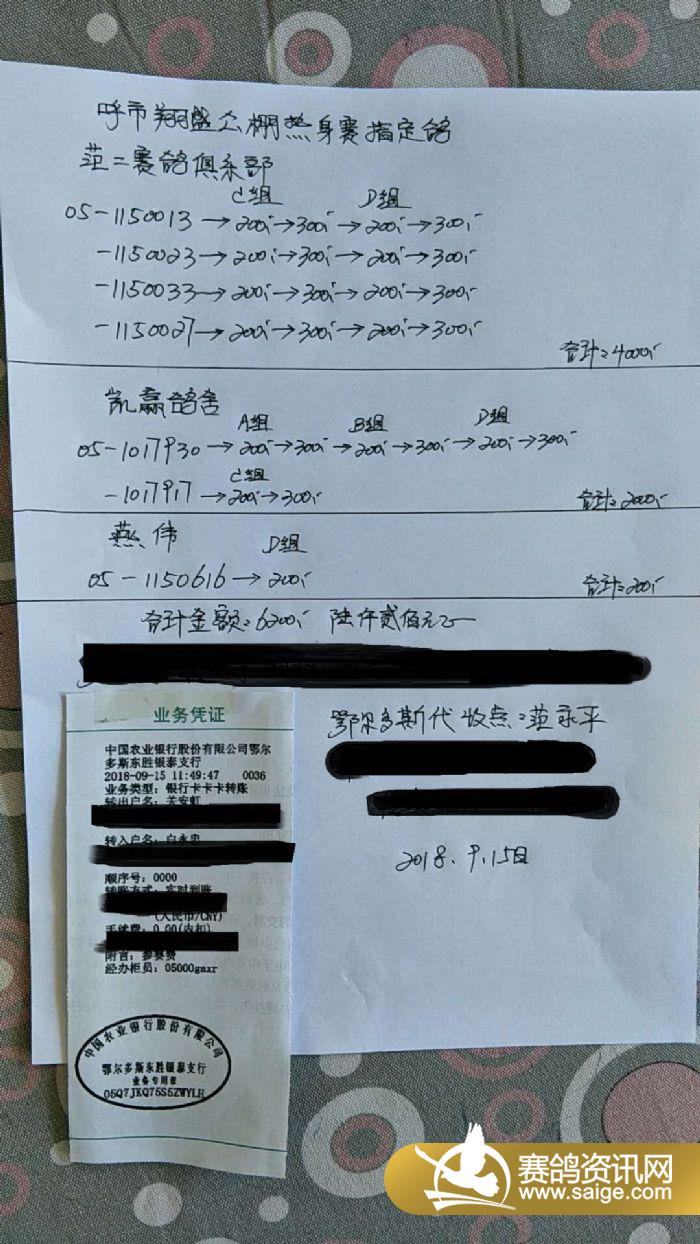 呼市翔盛公棚热身赛指定鸽
范二赛鸽俱乐部
C组 D组
05-1150013→200→300→200→300
-1150023→200→300→200→300
-1150033→200→300→200→300
-1150027→200→300→200→300
合计:4000
凯赢鸽舍
A组 B组 D组
05-1017930→200→300→200→300→200→300
C组
-1017917→200→300
合计:2000
燕伟
D组
05-1150616→200
合计:200
合计金额:6200 陆仟贰佰元
鄂尔多斯代收点:范永平
2018.9.15日
业务凭证
中国农业银行股份有限公司鄂尔
多斯东胜银泰支行
2018-09-15 11:49:47 0036
业务类型: 银行卡卡卡转账
转出户名: 关安虹
转入户名: 白永忠
顺序号: 0000
转账方式: 实时到账
(人民币/CNY)
手续费: 0.00(内扣)
附言: 参赛费
经办柜员: 05000gmxr
中国农业银行股份有限公司
鄂尔多斯东胜银泰支行
业务专用章
05Q7JKQ75S5ZWYLH
赛鸽资讯网
www.saige.com